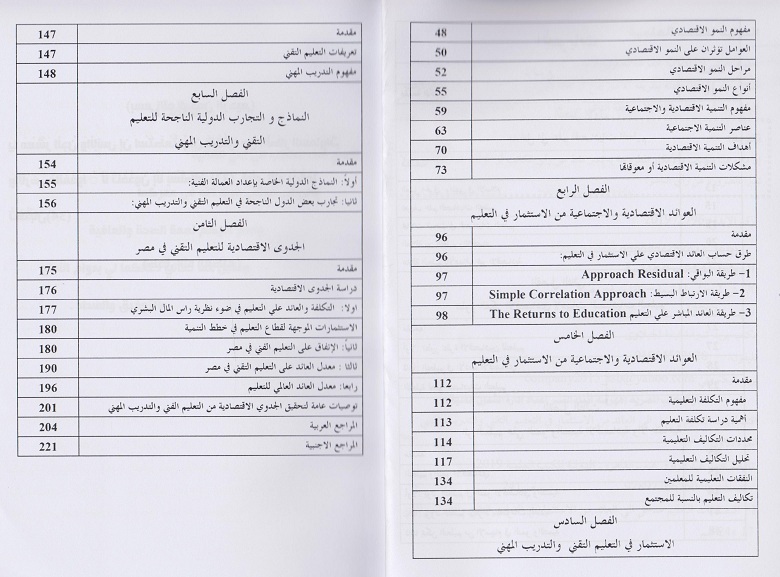 مفهوم النمو الاقتصادي 48
العوامل تؤثران على النمو الاقتصادي 50
مراحل النمو الاقتصادي 52
أنواع النمو الاقتصادي 55
مفهوم التنمية الاقتصادية والاجتماعية 59
عناصر التنمية الاجتماعية 63
أهداف التنمية الاقتصادية 70
مشكلات التنمية الاقتصادية أو معوقاتها 73
الفصل الرابع
العوائد الاقتصادية والاجتماعية من الاستثمار في التعليم
مقدمة 96
طرق حساب العائد الاقتصادي علي الاستثمار في التعليم: 96
1– طريقة البواقي: Approach Residual 97
2– طريقة الارتباط البسيط: Simple Correlation Approach 97
3– طريقة العائد المباشر علي التعليم The Returns to Education 98
الفصل الخامس
العوائد الاقتصادية والاجتماعية من الاستثمار في التعليم
مقدمة 112
مفهوم التكلفة التعليمية 112
أهمية دراسة تكلفة التعليم 113
محددات التكاليف التعليمية 114
تحليل التكاليف التعليمية 117
النفقات التعليمية للمعلمين 134
تكاليف التعليم بالنسبة للمجتمع 134
الفصل السادس
الاستثمار في التعليم التقني والتدريب المهني
مقدمة 147
تعريفات التعليم التقني 147
مفهوم التدريب المهني 148
الفصل السابع
النماذج و التجارب الدولية الناجحة للتعليم
التقني والتدريب المهني
مقدمة 154
أولاً: النماذج الدولية الخاصة بإعداد العمالة الفنية: 155
ثانيا: تجارب بعض الدول الناجحة في التعليم التقني والتدريب المهني: 156
الفصل الثامن
الجدوى الاقتصادية للتعليم التقني في مصر
مقدمة 175
دراسة الجدوى الاقتصادية 176
اولا: التكلفة والعائد علي التعليم في ضوء نظرية راس المال البشري 177
الاستثمارات الموجهة لقطاع التعليم في خطط التنمية 180
ثانياً: الإنفاق على التعليم الفني في مصر 180
ثالثا : معدل العائد على التعليم التقني في مصر 190
رابعا: معدل العائد العالمي للتعليم 196
توصيات عامة لتحقيق الجدوي الاقتصادية من التعليم الفني والتدريب المهني 201
المراجع العربية 204
المراجع الاجنبية 221